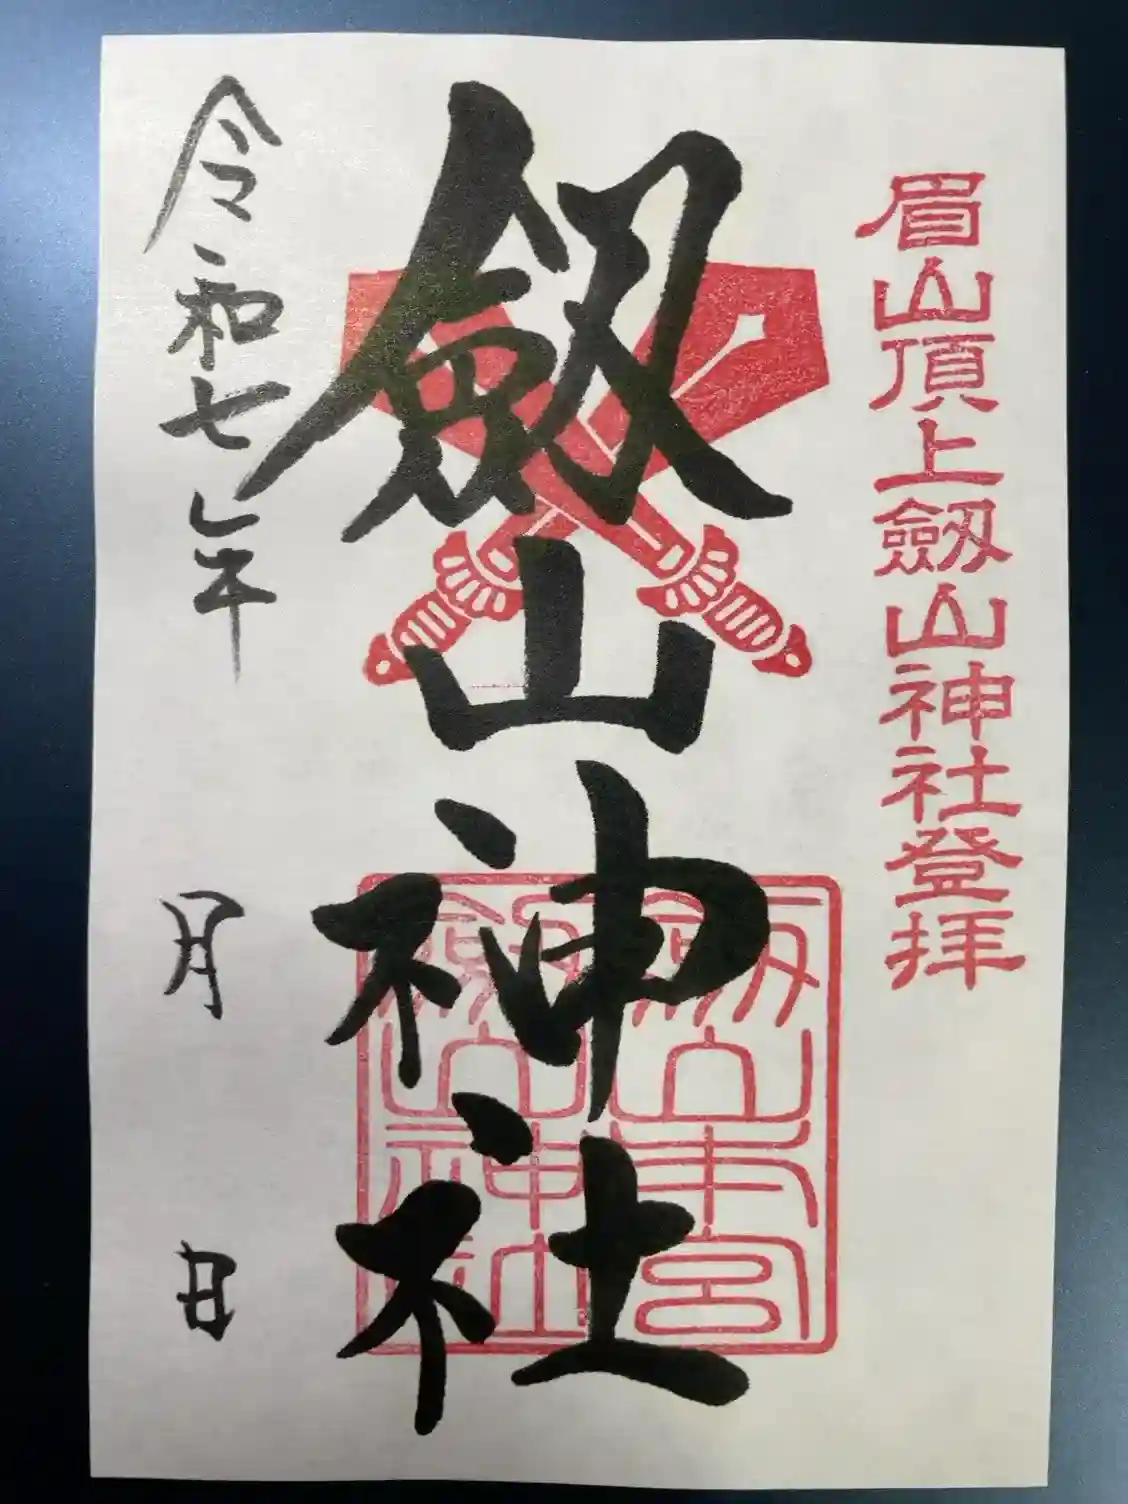 眉山頂上劔山神社登拝
劔山神社
劔山本宮
劔山神社
令和七年
月
日